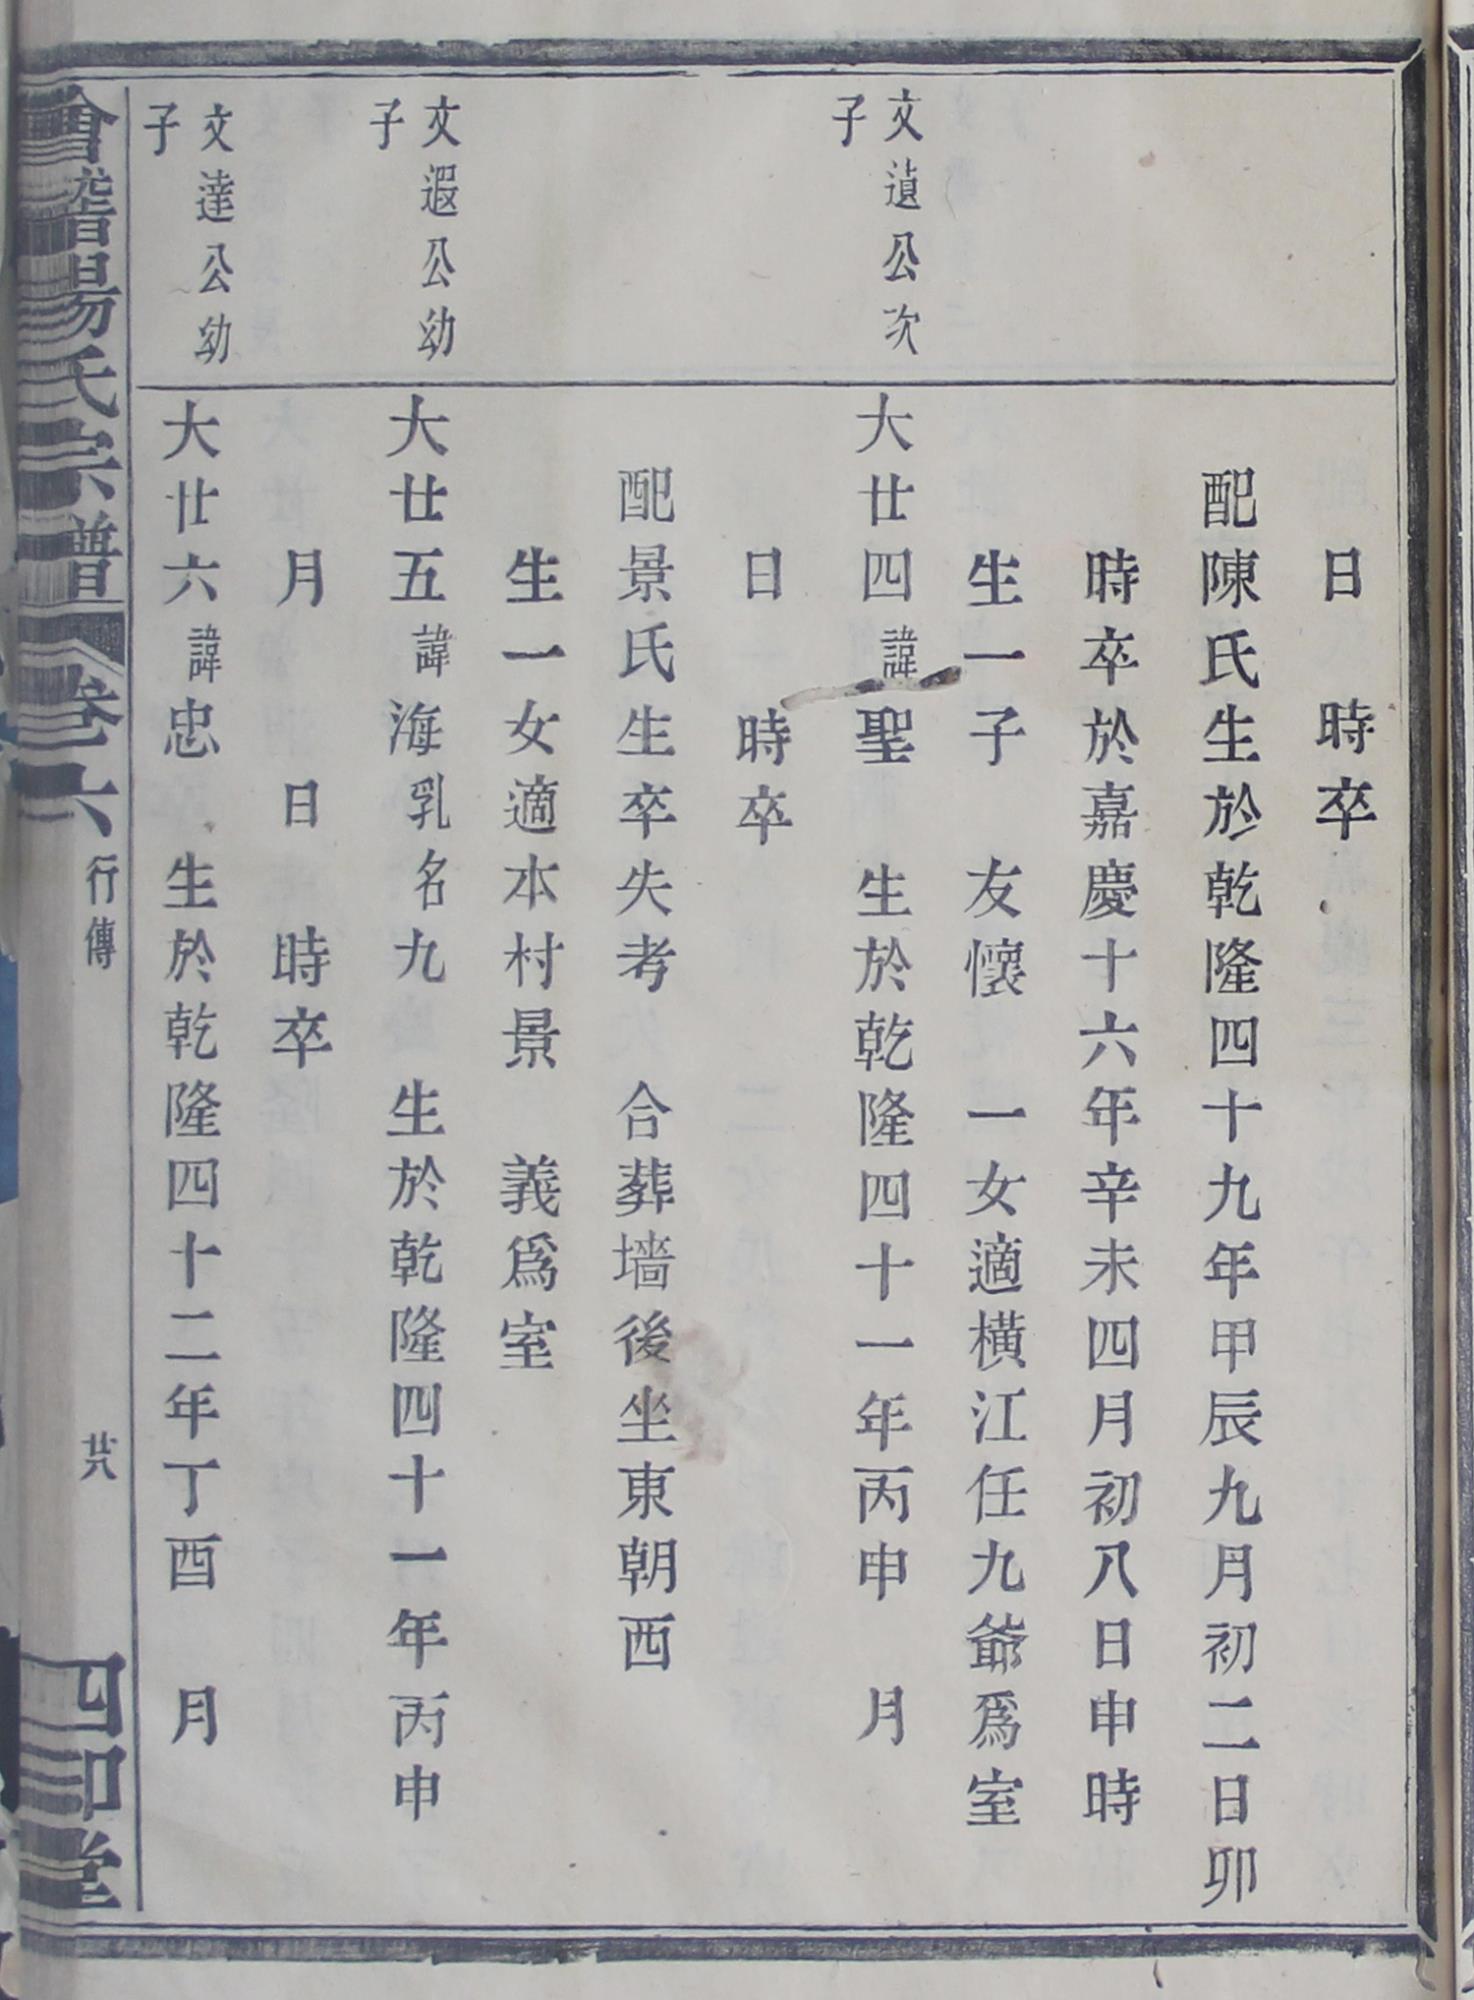 日 時卒
配陳氏生於乾隆四十九年甲辰九月初二日卯
時卒於嘉慶十六年辛未四月初八日申時
生一子 友懷 一女適橫江任九爺爲室
文遉公次
子
大廿四諱聖 生於乾隆四十一年丙申 月
日 時卒
配景氏生卒失考 合葬墻後坐東朝西
生一女適本村景 義爲室
文遐公幼
子
大廿五諱海乳名九 生於乾隆四十一年丙申
月 日 時卒
文達公幼
子
大廿六諱忠 生於乾隆四十二年丁酉 月
會稽楊氏宗譜 卷六 行傳 廿八 四知堂